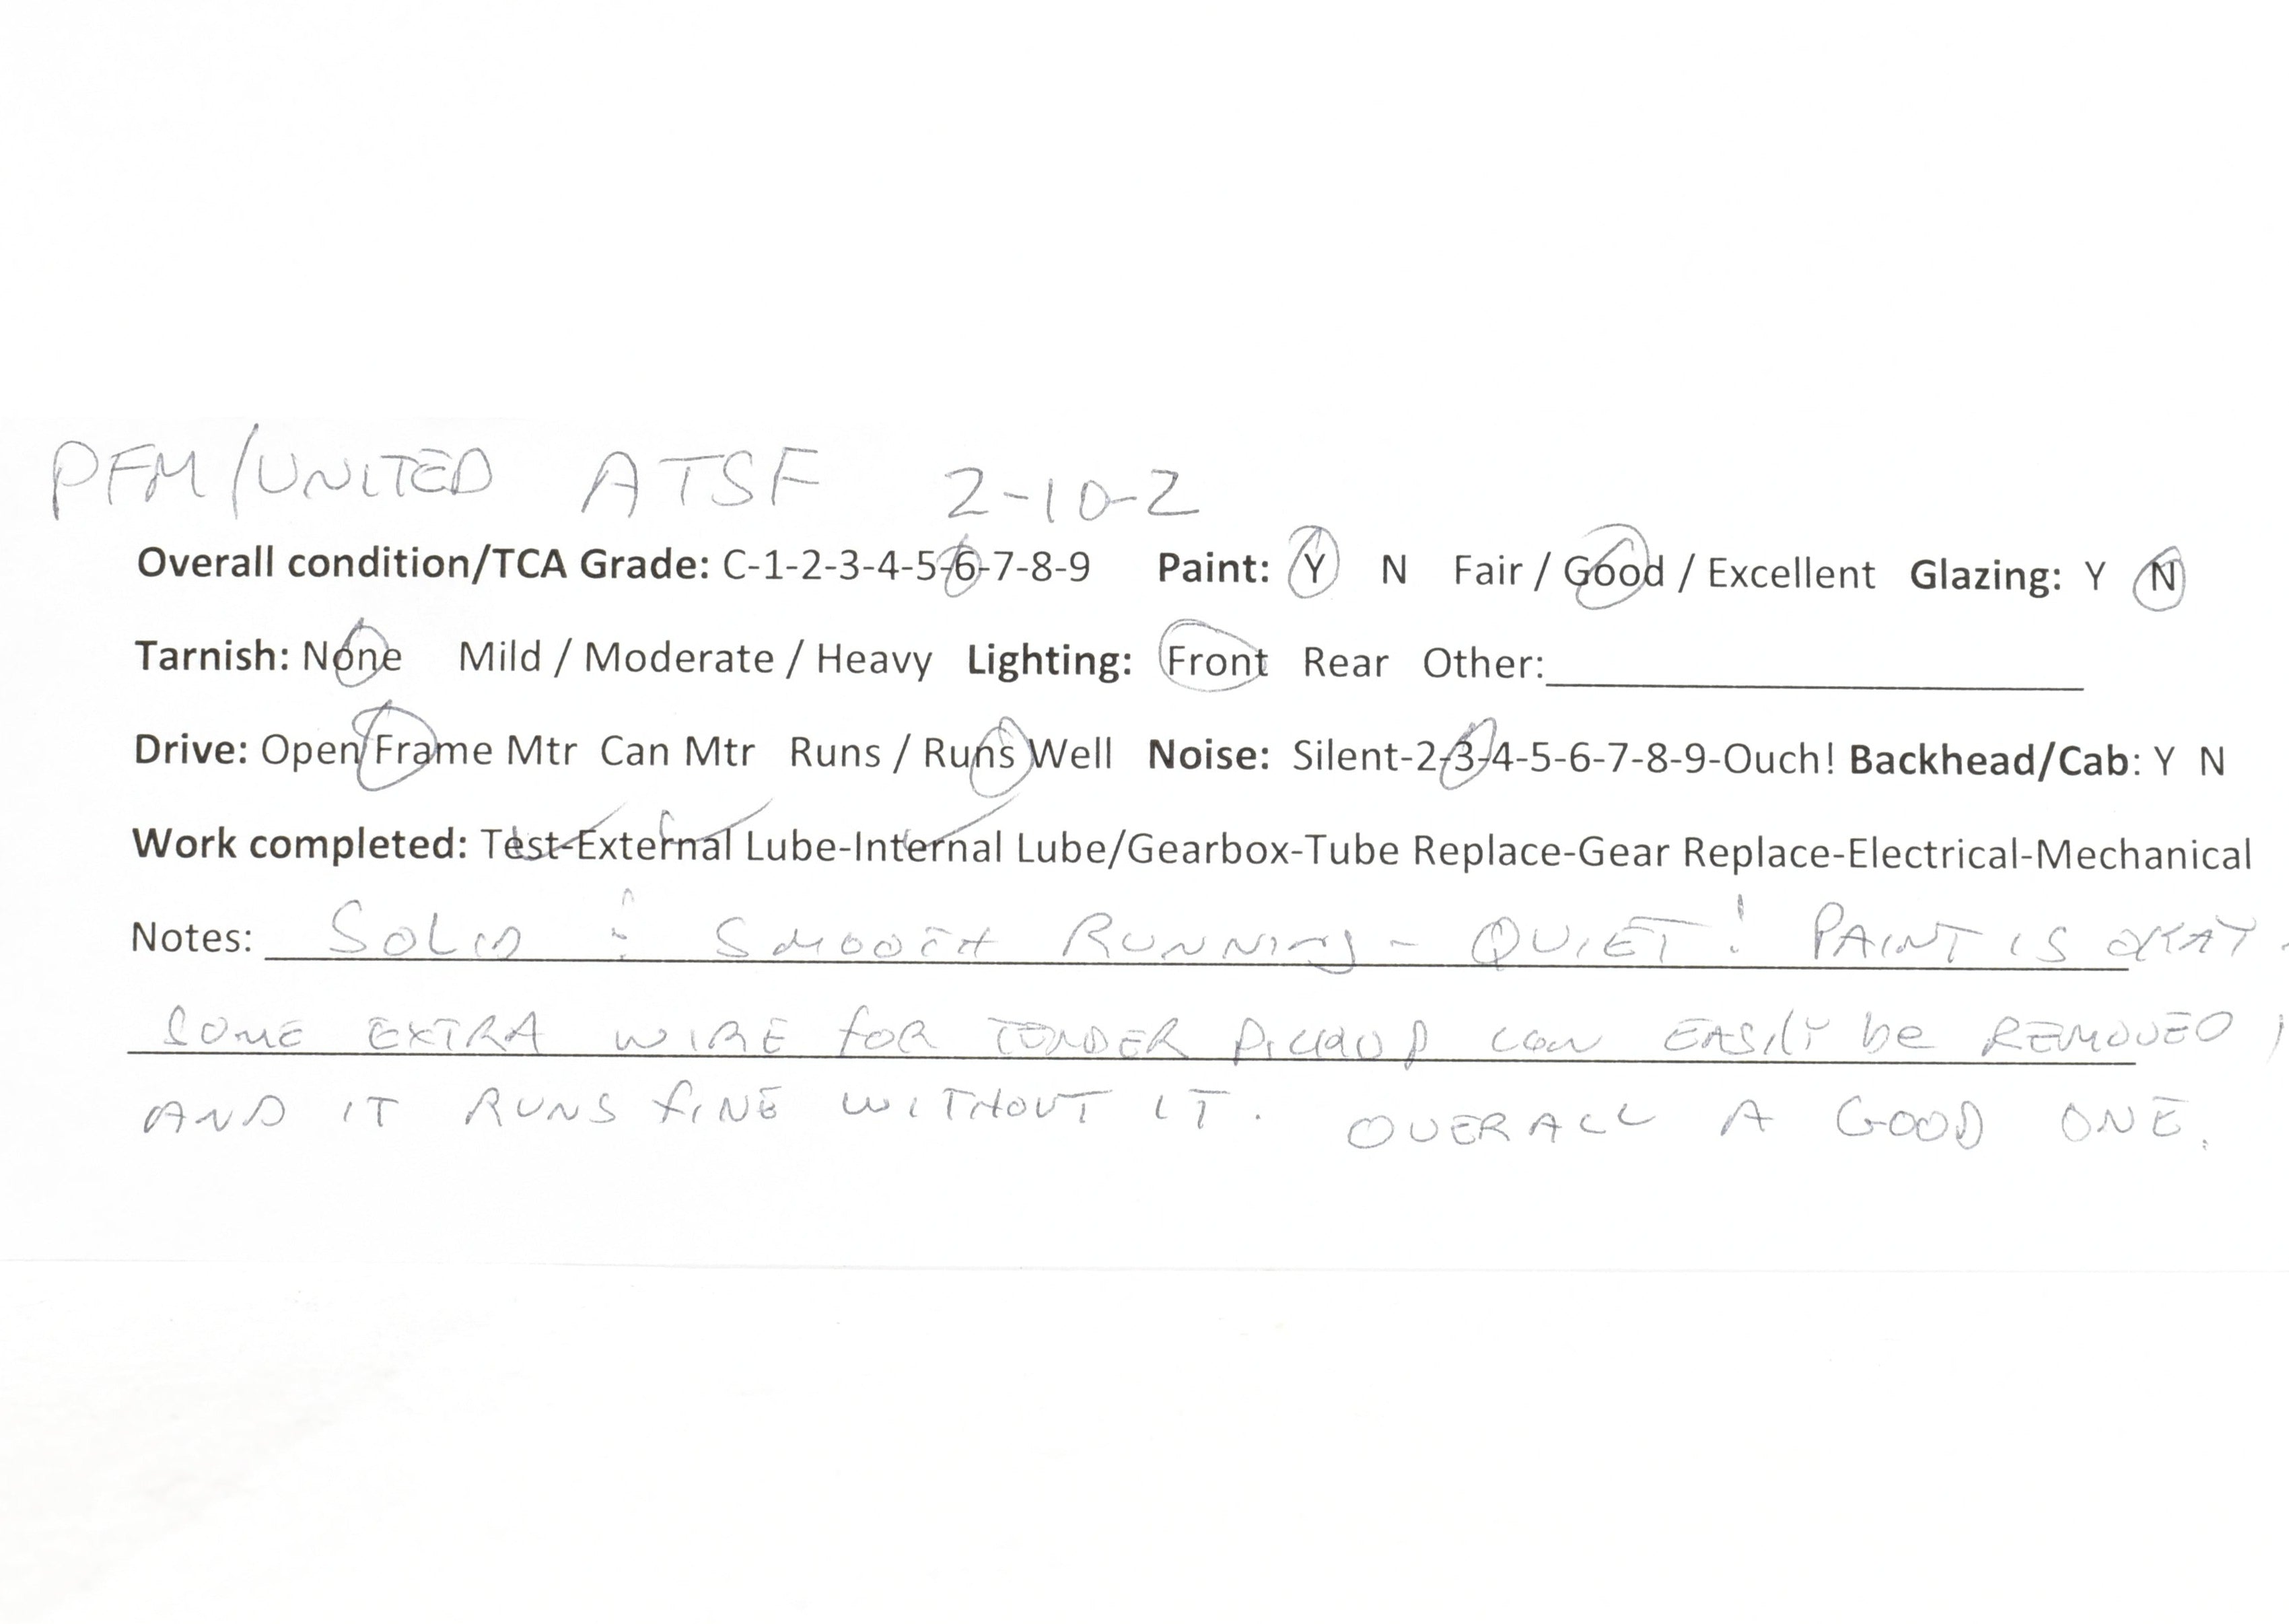 PFM/UNITED ATSF 2-10-2
Overall condition/TCA Grade: C-1-2-3-4-5-6-7-8-9 Paint: Y N Fair / Good / Excellent Glazing: Y N
Tarnish: None Mild / Moderate / Heavy Lighting: Front Rear Other:
Drive: Open Frame Mtr Can Mtr Runs / Runs Well Noise: Silent-2-3-4-5-6-7-8-9-Ouch! Backhead/Cab: Y N
Work completed: Test-External Lube-Internal Lube/Gearbox-Tube Replace-Gear Replace-Electrical-Mechanical
Notes: SOLID & SMOOTH RUNNING - QUIET! PAINT IS OKAY.
SOME EXTRA WIRE FOR TENDER PICKUP CAN EASILY BE REMOVED,
AND IT RUNS FINE WITHOUT IT. OVERALL A GOOD ONE.